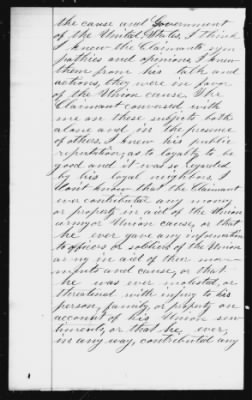 the cause and Government
of the United States, I think
I knew the Claimants sym
pathies and opinions, I knew
them from his talk and
actions, they were in favor
of the Union cause, The
Claimant conversed with
me on these subjects both
alone and in the presence
of others. I knew his public
reputation, as to loyalty to be
good and it was so regarded
by his loyal neighbors. I
don't know that the Claimant
ever contributed any money
or property in aid of the Union
army or Union cause, or that
he ever gave any information
to officers or soldiers of the Union
army in aid of their move
ments and cause, or that
he was ever molested, or
threatened with injury to his
person, family, or property on
account of his Union sen
timents, or that he, ever,
in any way, contributed any